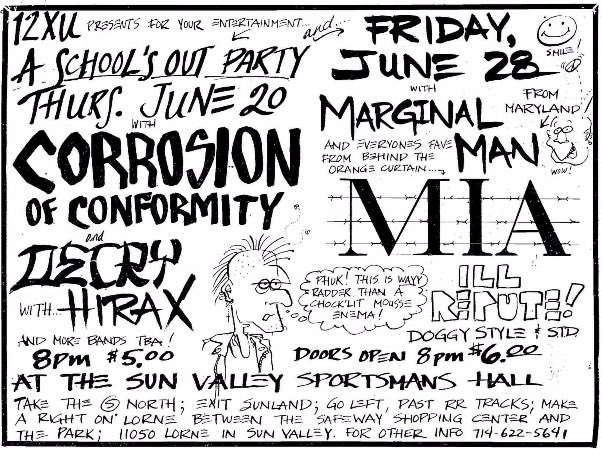 12XU PRESENTS FOR YOUR ENTERTAINMENT... and...
A SCHOOL'S OUT PARTY
THURS. JUNE 20
WITH
CORROSION
OF CONFORMITY
and
DECRY
WITH... HIRAX
AND MORE BANDS TBA!
8PM $5.00
FRIDAY,
JUNE 28
SMILE!
WITH
MARGINAL
MAN
FROM
MARYLAND!
WOW!
AND EVERYONES FAVE
FROM BEHIND THE
ORANGE CURTAIN...
MIA
PHUK! THIS IS WAYY
RADDER THAN A
CHOCK'LIT MOUSSE
ENEMA!
ILL
REPUTE!
DOGGY STYLE & STD
DOORS OPEN 8PM $6.00
AT THE SUN VALLEY SPORTSMANS HALL
TAKE THE 5 NORTH; EXIT SUNLAND; GO LEFT, PAST RR TRACKS; MAKE
A RIGHT ON LORNE BETWEEN THE SAFEWAY SHOPPING CENTER AND
THE PARK; 11050 LORNE IN SUN VALLEY. FOR OTHER INFO 714-622-5641